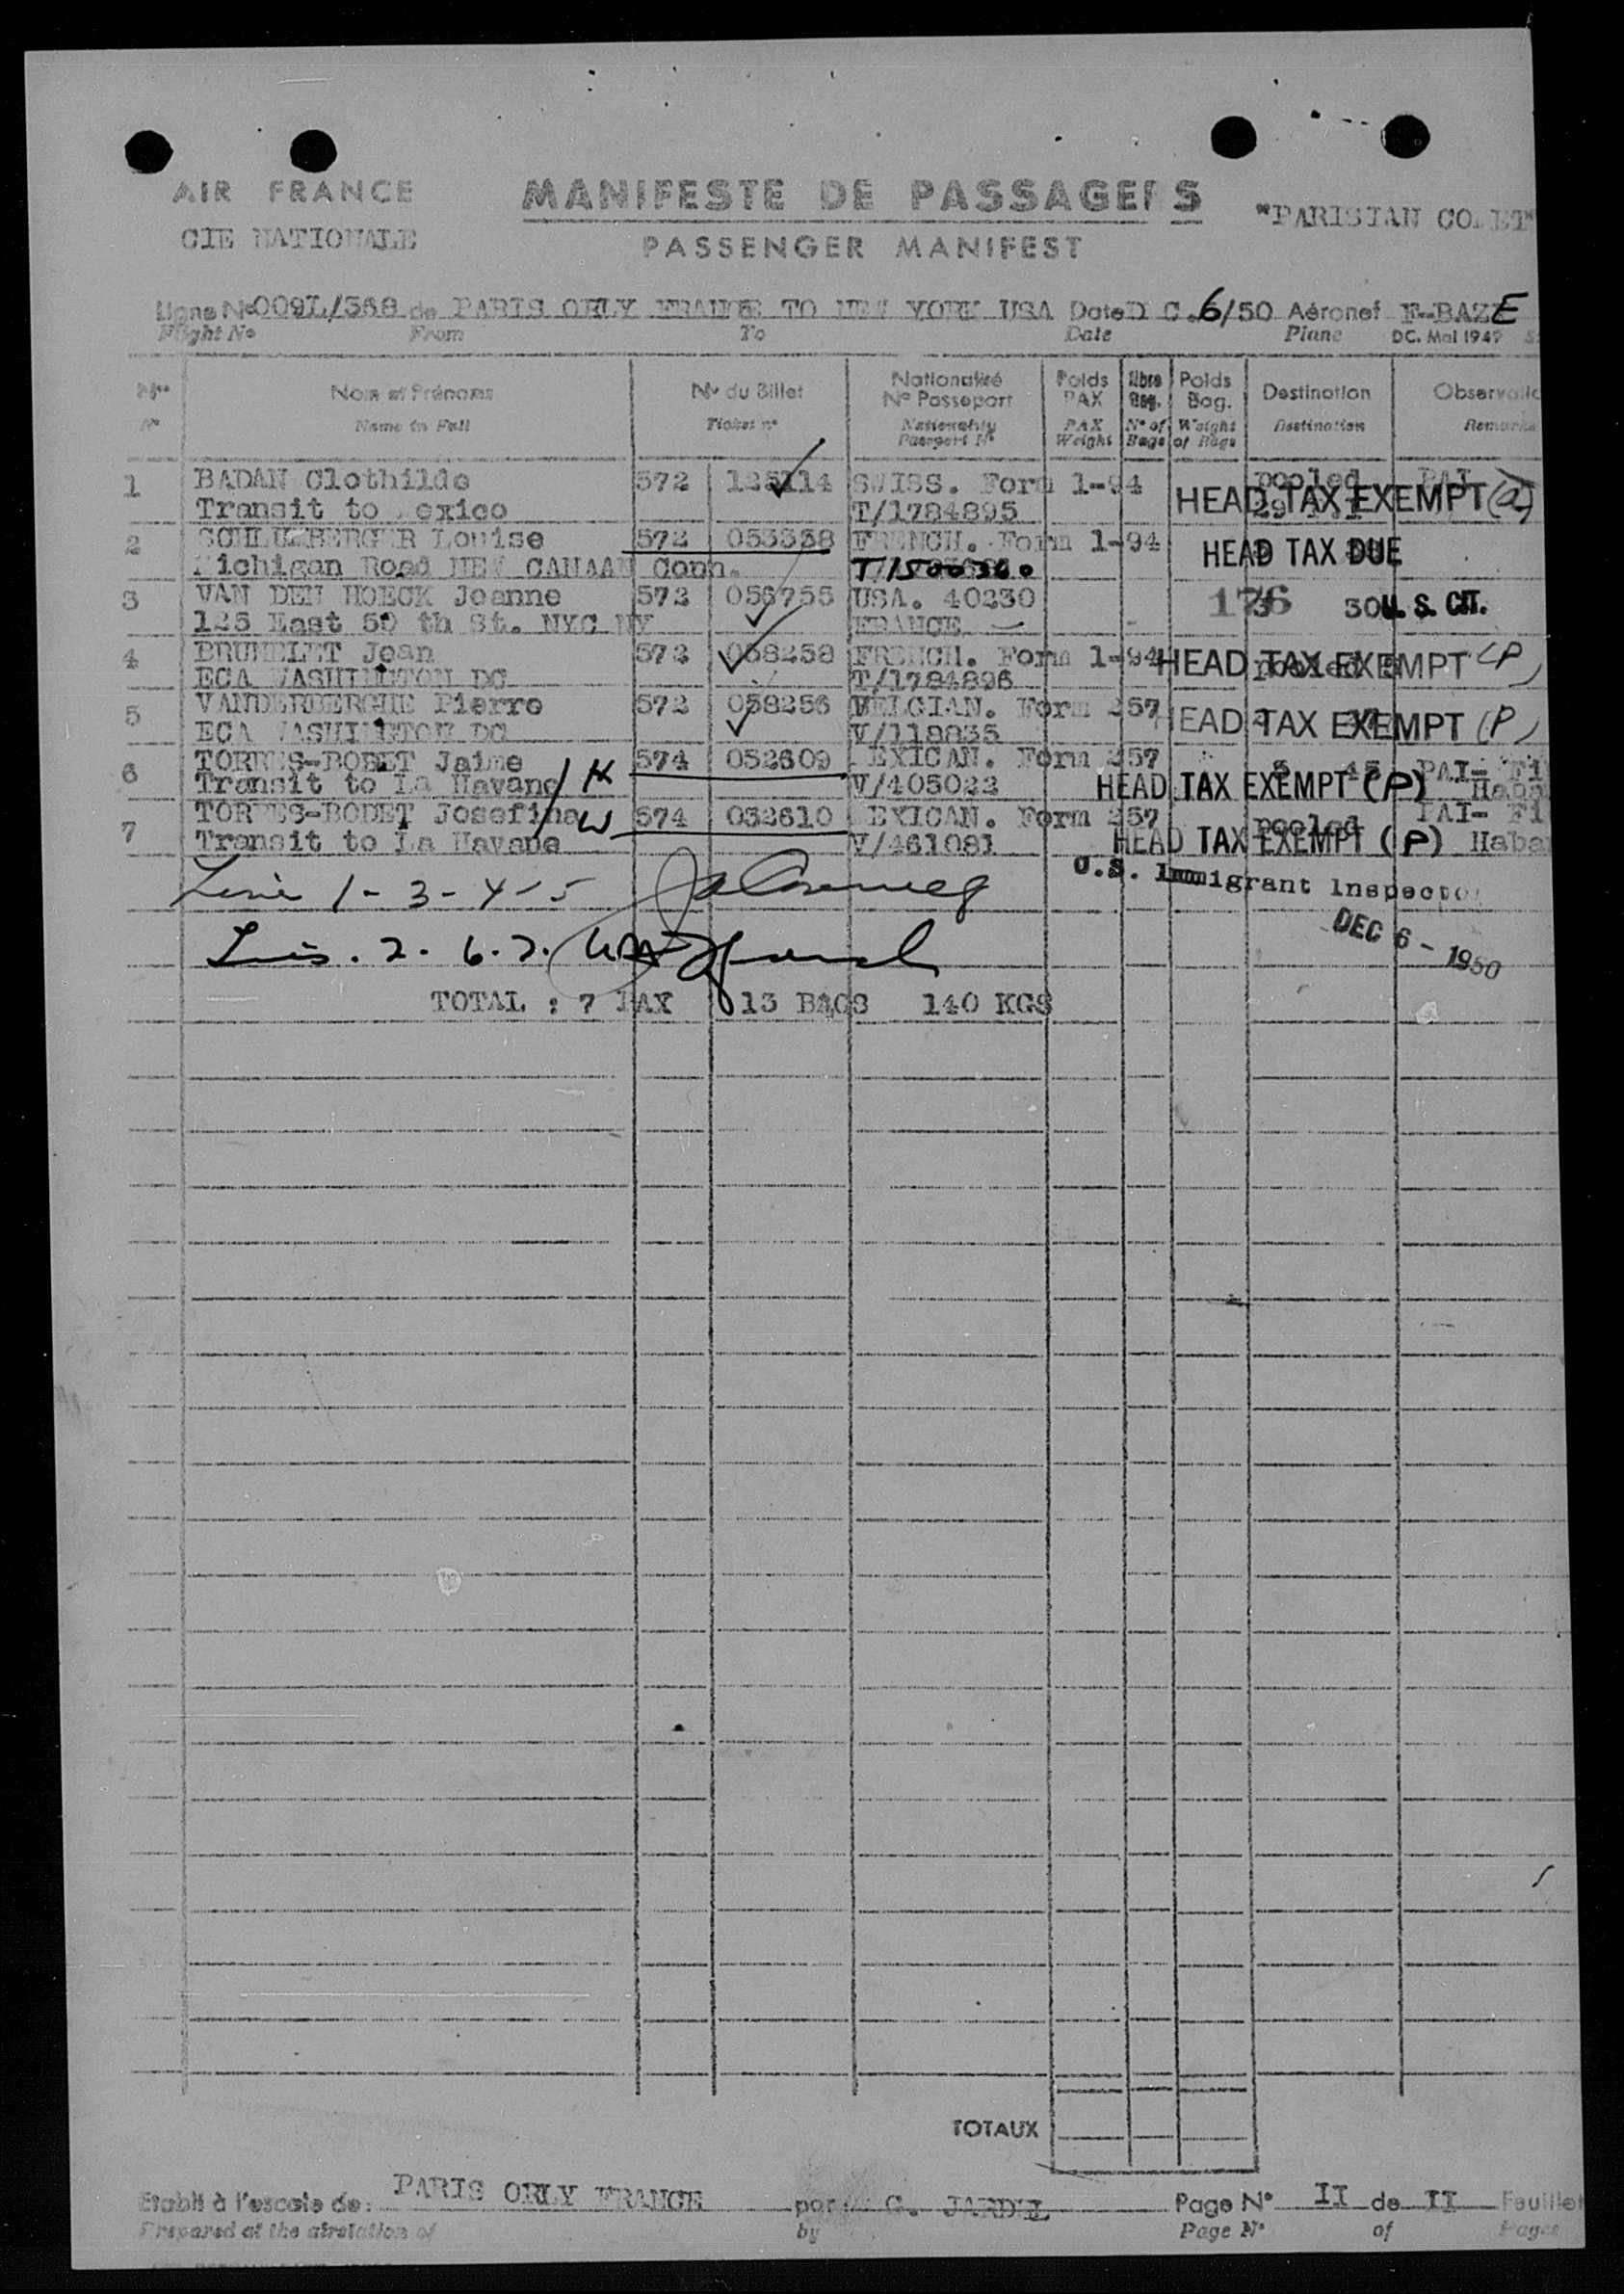 AIR FRANCE
CIE NATIONALE
MANIFESTE DE PASSAGERS
PASSENGER MANIFEST
"PARISIAN CO ET"
Ligne No 009L/368 de PARIS ORLY FRANCE TO NEW YORK USA Date D C.6/50 Aéronef F-BAZE
Flight No From To Date Plane DC. Mai 1949
Nos Nom et Prénoms No du Billet Nationalité No Passeport Poids PAX Nbre Bag. Poids Bag. Destination Observatio
No Name in Full Ticket no Nationality Passport No PAX Weight No of Bags Weight of Bags Destination Remarks
1 BADAN Clothilde 572 125114 SWISS. Form 1-94 pooled PAI
Transit to exico T/1784895 HEAD TAX EXEMPT (a)
2 SCHLUMBERGER Louise 572 053338 FRENCH. Form 1-94 HEAD TAX DUE
Michigan Road NEW CANAAN Conn. T/1500360
3 VAN DEN HOECK Jeanne 572 056755 USA. 40230 176 30 U.S. CIT.
125 East 50 th St. NYC NY FRANCE
4 BRUNELET Jean 572 058258 FRENCH. Form 1-94 HEAD TAX EXEMPT (P)
ECA WASHINGTON DC T/1784896
5 VANDERBERGHE Pierre 572 058256 BELGIAN. Form 257 HEAD TAX EXEMPT (P)
ECA WASHINGTON DC V/118835
6 TORRES-BODET Jaime 574 052609 EXICAN. Form 257 5 45 PAI- Fi
Transit to La Havane / H V/405022 HEAD TAX EXEMPT (P) Haba
7 TORRES-BODET Josefina / W 574 052610 EXICAN. Form 257 pooled PAI- Fi
Transit to La Havane V/461081 HEAD TAX EXEMPT (P) Haba
1-3-4-5
U.S. Immigrant Inspector
2. 6. 7.
DEC 6 - 1950
TOTAL : 7 PAX 13 BAGS 140 KGS
TOTAUX
Etabli à l'escale de: PARIS ORLY FRANCE par G. JARDEL Page No II de II Feuillet
Prepared at the airstation of by Page No of Pages